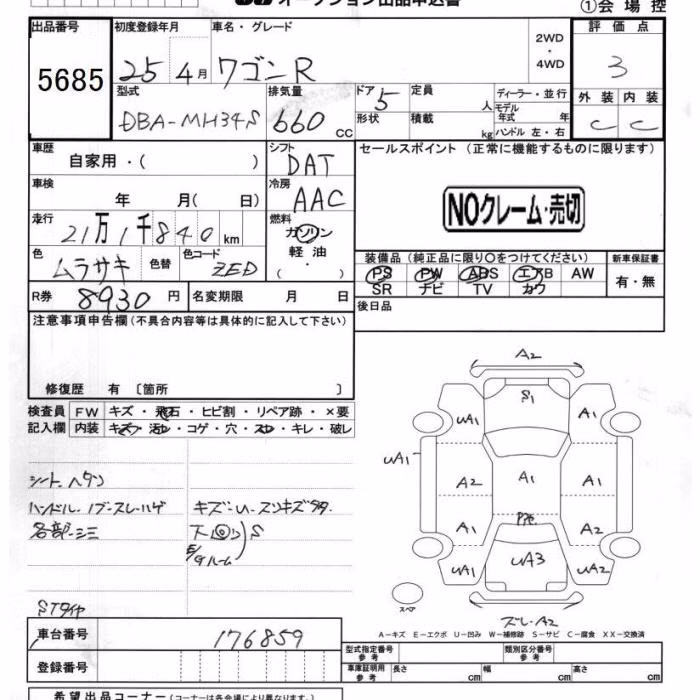 オークション出品申込書
①会場控
出品番号 初度登録年月 車名・グレード 2WD ・ 4WD 評価点
5685 25年4月 ワゴンR 3
型式 排気量 ドア 定員 ディーラー・並行 外装 内装
DBA-MH34S 660cc 5 人 モデル年式 年 C C
形状 積載 kg ハンドル 左・右
車歴 自家用・( ) シフト DAT セールスポイント (正常に機能するものに限ります)
車検 年 月( 日) 冷房 AAC NOクレーム・売切
走行 21万1千840km 燃料 ガソリン 軽油 ( ・ )
色 ムラサキ 色替 色コード ZED 装備品 (純正品に限り○をつけてください) 新車保証書
PS PW ABS エアB AW 有・無
SR ナビ TV カワ
R券 8930円 名変期限 月 日 後日品
注意事項申告欄(不具合内容等は具体的に記入して下さい)
修復歴 有 〔箇所 〕
検査員 FW キズ・飛石・ヒビ割・リペア跡・×要
記入欄 内装 キズ・汚レ・コゲ・穴・スレ・キレ・破レ
シートヘタリ
ハンドル・ノブ・スレ・ハゲ キズ・U・スリキズ多々.
各部シミ 下回り S
E/gルーム
STタイヤ
A2
S1
UA1 A1
UA1
A2 A1 A1
A1 A1
UA1 UA3 UA2
スペア
ズレ・A2
A-キズ E-エクボ U-凹み W-補修跡 S-サビ C-腐食 XX-交換済
車台番号 176859
型式指定番号 参考 類別区分番号 参考
登録番号 車庫証明用 参考 長さ cm 幅 cm 高さ cm
希望出品コーナー(コーナーは各会場により異なります。)